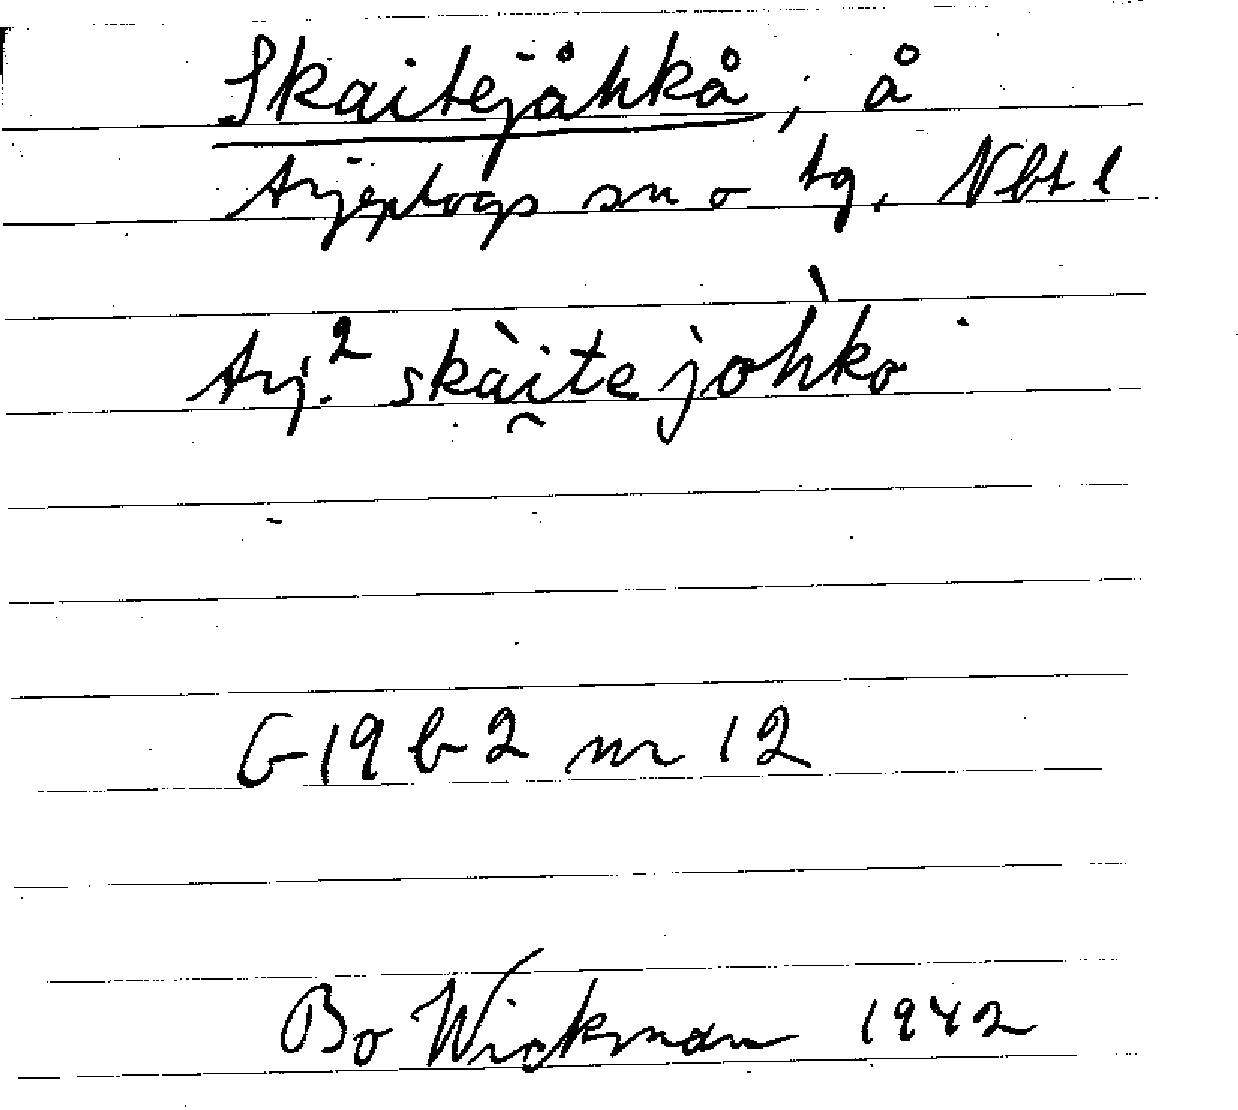 Skaitejåhkå, å
Arjeplogs sn o tg, Nbt l
Arj.² skài̯tejohkò
G 19 b 2 nr 12
Bo Wickman 1942